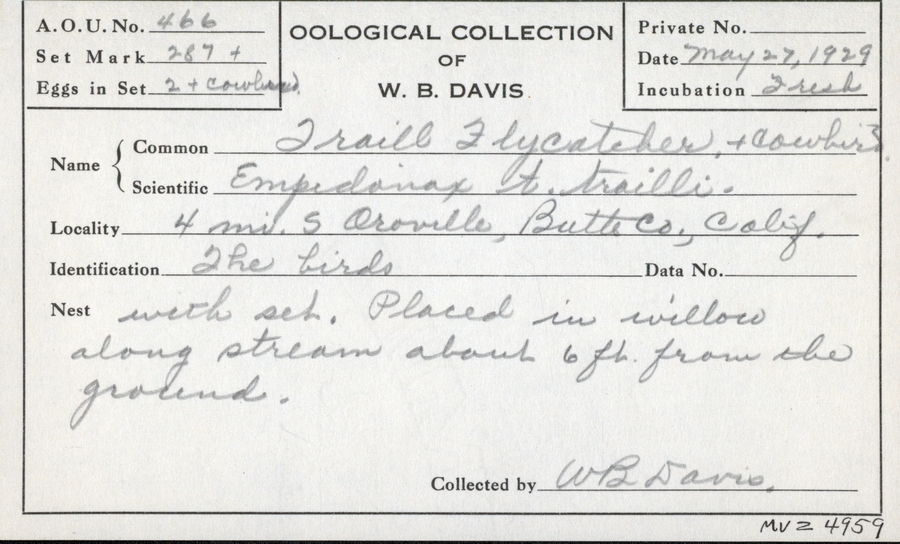 A.O.U. No. 466
Set Mark 287 +
Eggs in Set 2 + cowbird.
OOLOGICAL COLLECTION
OF
W. B. DAVIS
Private No.
Date May 27, 1929
Incubation Fresh
Name
Common Traill Flycatcher, + cowbird.
Scientific Empidonax t. trailli.
Locality 4 mi. S Oroville, Butte Co., Calif.
Identification The birds Data No.
Nest with set. Placed in willow
along stream about 6 ft. from the
ground.
Collected by WB Davis.
MVZ 4959